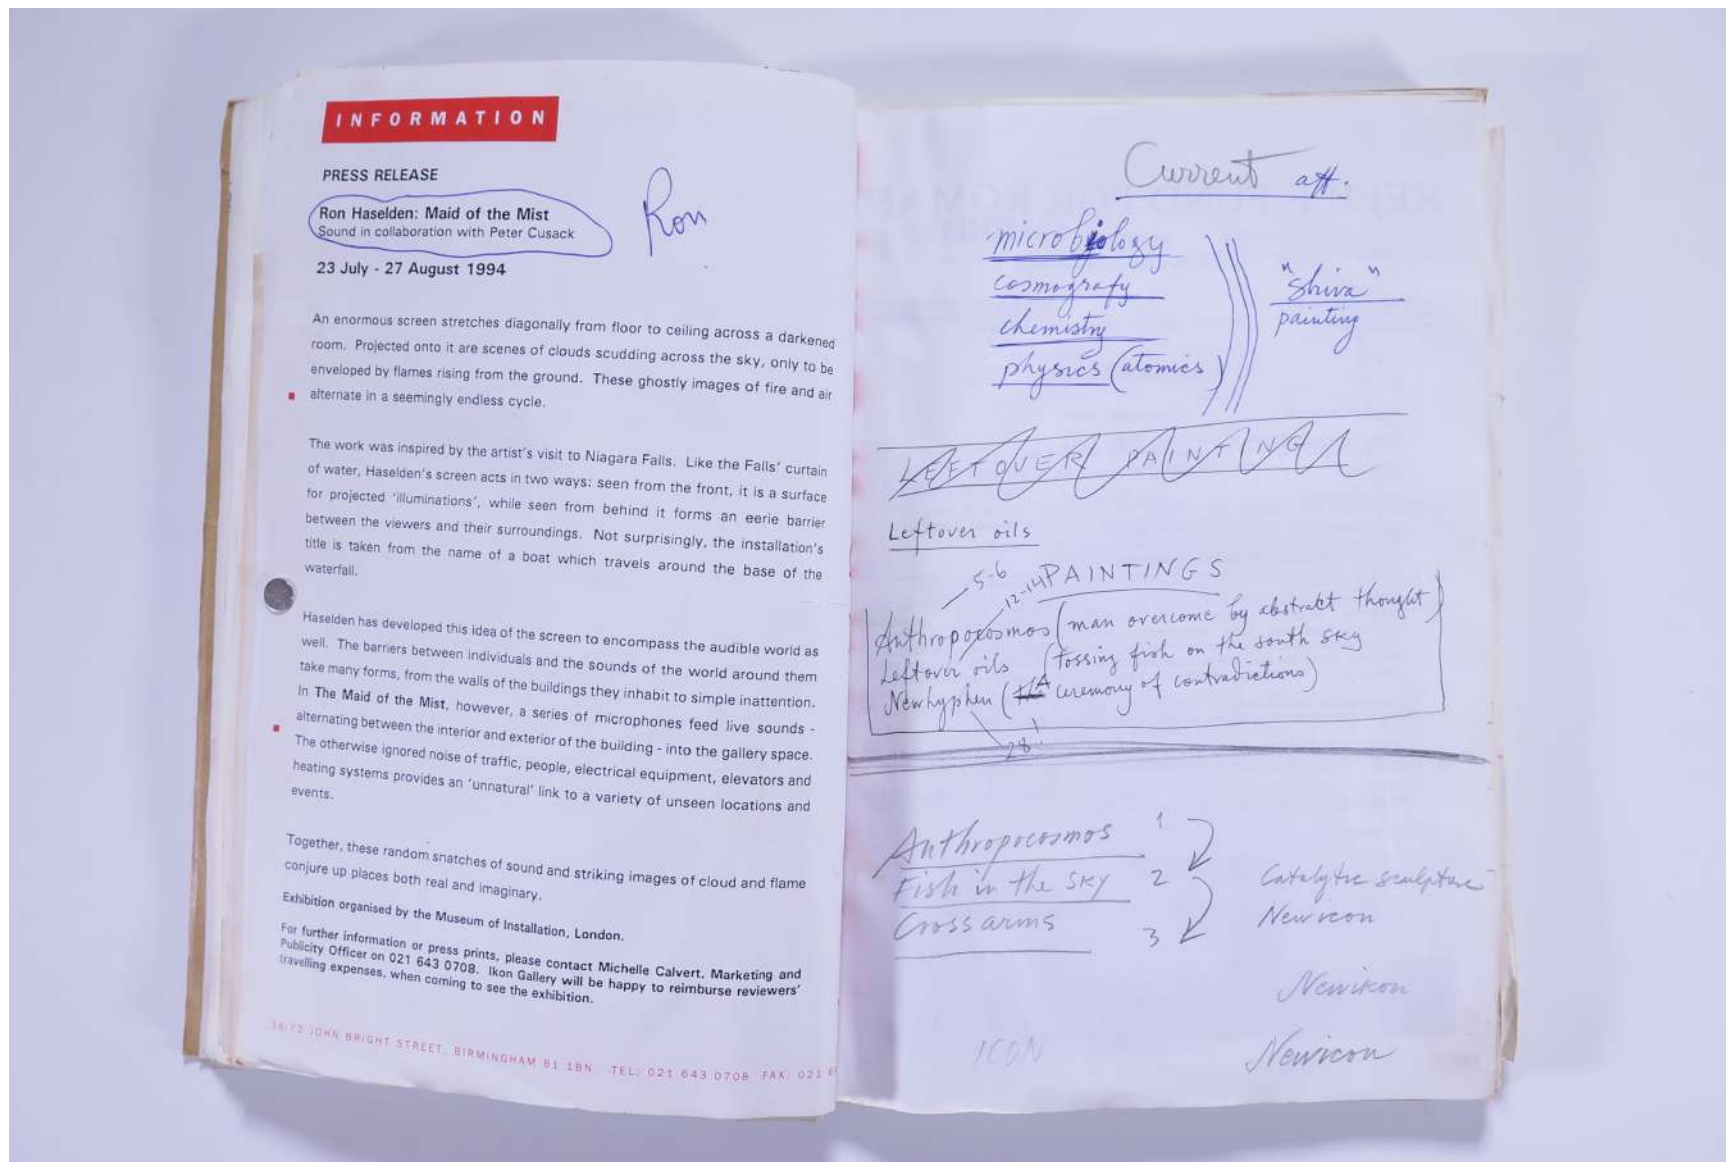 INFORMATION
PRESS RELEASE
Ron Haselden: Maid of the Mist
Sound in collaboration with Peter Cusack
Ron
23 July - 27 August 1994
An enormous screen stretches diagonally from floor to ceiling across a darkened
room. Projected onto it are scenes of clouds scudding across the sky, only to be
enveloped by flames rising from the ground. These ghostly images of fire and air
alternate in a seemingly endless cycle.
The work was inspired by the artist's visit to Niagara Falls. Like the Falls' curtain
of water, Haselden's screen acts in two ways: seen from the front, it is a surface
for projected 'illuminations', while seen from behind it forms an eerie barrier
between the viewers and their surroundings. Not surprisingly, the installation's
title is taken from the name of a boat which travels around the base of the
waterfall.
Haselden has developed this idea of the screen to encompass the audible world as
well. The barriers between individuals and the sounds of the world around them
take many forms, from the walls of the buildings they inhabit to simple inattention.
In The Maid of the Mist, however, a series of microphones feed live sounds -
alternating between the interior and exterior of the building - into the gallery space.
The otherwise ignored noise of traffic, people, electrical equipment, elevators and
heating systems provides an 'unnatural' link to a variety of unseen locations and
events.
Together, these random snatches of sound and striking images of cloud and flame
conjure up places both real and imaginary.
Exhibition organised by the Museum of Installation, London.
For further information or press prints, please contact Michelle Calvert, Marketing and
Publicity Officer on 021 643 0708. Ikon Gallery will be happy to reimburse reviewers'
travelling expenses, when coming to see the exhibition.
JOHN BRIGHT STREET, BIRMINGHAM B1 1BN TEL: 021 643 0708 FAX: 021
Current att.
microbiology
cosmografy
chemistry
physics (atomics)
"Shiva"
painting
LEFTOVER PAINTING
Leftover oils
5-6
12-14 PAINTINGS
Anthropocosmos (man overcome by abstrakt thought)
Leftover oils (tossing fish on the south sky
Newhyphen (A ceremony of contradictions)
28!
Anthropocosmos 1
Fish in the sky 2
Cross arms 3
Catalytic sculpture
Newicon
Newikon
ICON
Newicon